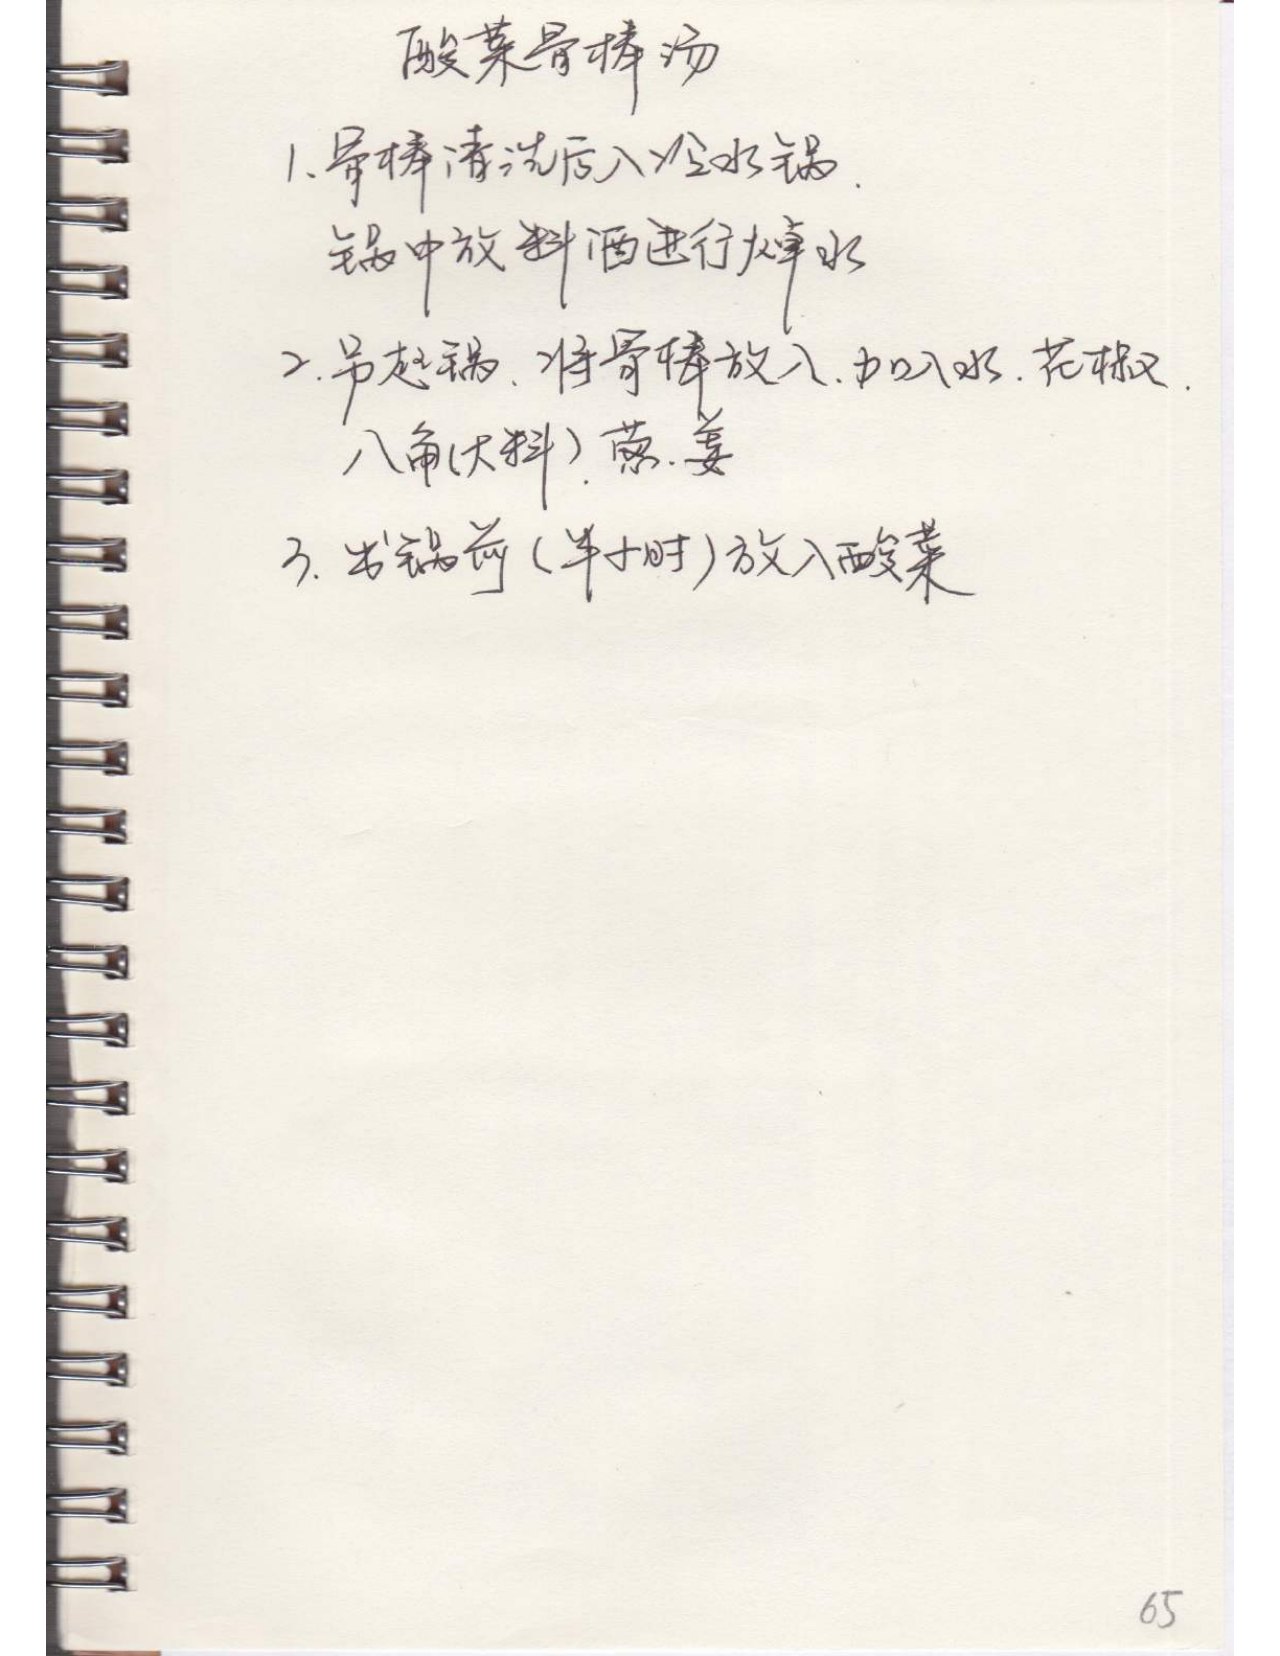 酸菜骨棒汤
1.骨棒清洗后入冷水锅.
锅中放料酒进行焯水
2.另起锅、将骨棒放入.加入水.花椒.
八角(大料)、葱.姜
3.出锅前(半小时)放入酸菜
65